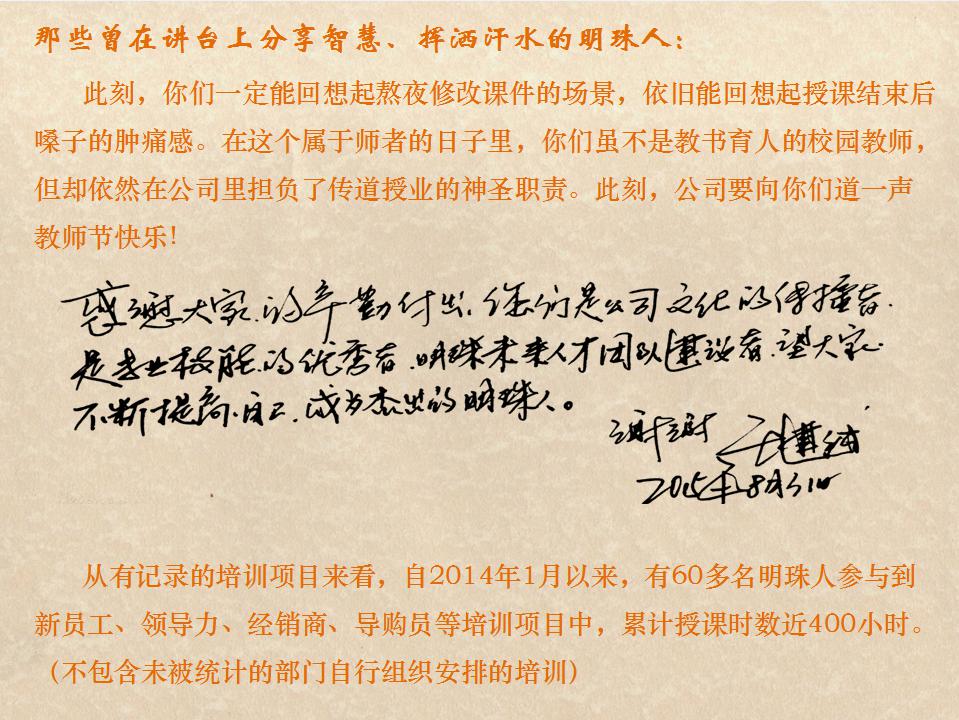 那些曾在讲台上分享智慧、挥洒汗水的明珠人：
此刻，你们一定能回想起熬夜修改课件的场景，依旧能回想起授课结束后
嗓子的肿痛感。在这个属于师者的日子里，你们虽不是教书育人的校园教师，
但却依然在公司里担负了传道授业的神圣职责。此刻，公司要向你们道一声
教师节快乐!
感谢大家的辛勤付出,你们是公司文化的传播者.
是专业技能的优秀者.明珠未来人才团队建设者.望大家
不断提高自己.成为杰出的明珠人。
谢谢
2015年8月31日
从有记录的培训项目来看，自2014年1月以来，有60多名明珠人参与到
新员工、领导力、经销商、导购员等培训项目中，累计授课时数近400小时。
(不包含未被统计的部门自行组织安排的培训)